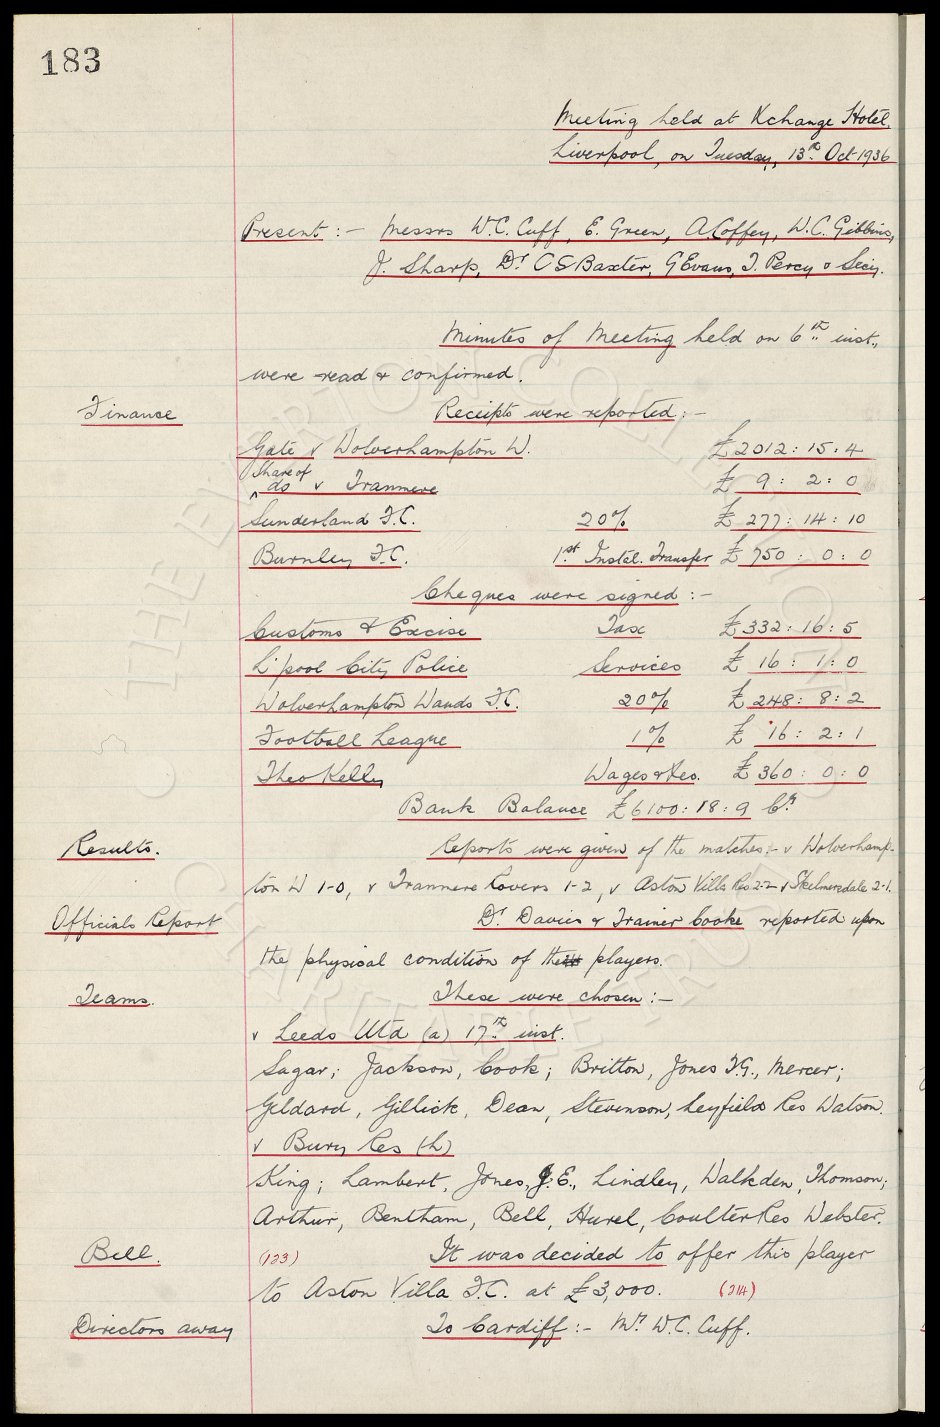 183
Meeting held at Xchange Hotel,
Liverpool, on Tuesday, 13th Oct 1936
Present :- Messrs W.C. Cuff, E. Green, A. Coffey, W.C. Gibbins,
J. Sharp, Dr C S Baxter, G Evans, T. Percy & Secy.
Minutes of Meeting held on 6th inst.,
were read & confirmed.
Finance Receipts were reported :-
Gate v Wolverhampton W. £2012 : 15 : 4
Share of
^ do v Tranmere £ 9 : 2 : 0
Sunderland F.C. 20% £ 277 : 14 : 10
Burnley F.C. 1st Instal. Transfer £ 750 : 0 : 0
Cheques were signed :-
Customs & Excise Tax £332 : 16 : 5
L'pool City Police Services £ 16 : 1 : 0
Wolverhampton Wands F.C. 20% £ 248 : 8 : 2
Football League 1% £ 16 : 2 : 1
Theo Kelly Wages & Fees. £ 360 : 0 : 0
Bank Balance £6100 : 18 : 9 Cr.
Results. Reports were given of the matches :- v Wolverhamp-
ton W 1-0, v Tranmere Rovers 1-2, v Aston Villa Res 2-2 v Skelmersdale 2-1.
Officials Report Dr. Davies & Trainer Cooke reported upon
the physical condition of the players.
Teams. These were chosen :-
v Leeds Utd (a) 17th inst.
Sagar; Jackson, Cook; Britton, Jones T.G., Mercer;
Geldard, Gillick, Dean, Stevenson, Leyfield Res Watson.
v Bury Res (h)
King; Lambert, Jones, J.E., Lindley, Walkden, Thomson;
Arthur, Bentham, Bell, Hurel, Coulter Res Webster.
Bell. (123) It was decided to offer this player
to Aston Villa F.C. at £3,000. (214)
Directors away To Cardiff :- Mr. W.C. Cuff.
THE EVERTON COLLECTION
CHARITABLE TRUST